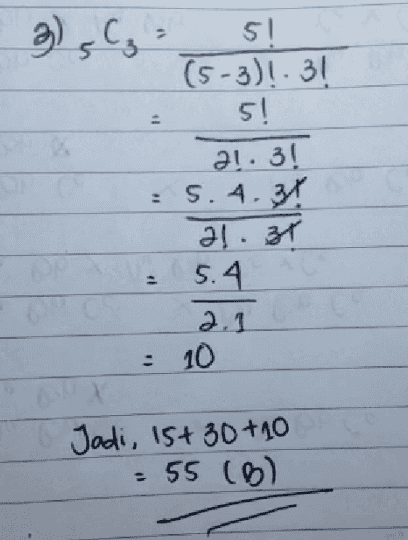 3) ₅C₃ = 5!
(5-3)! . 3!
= 5!
2! . 3!
= 5. 4. 3!
2! . 3!
= 5.4
2.1
= 10
Jadi, 15+ 30 +10
= 55 (B)